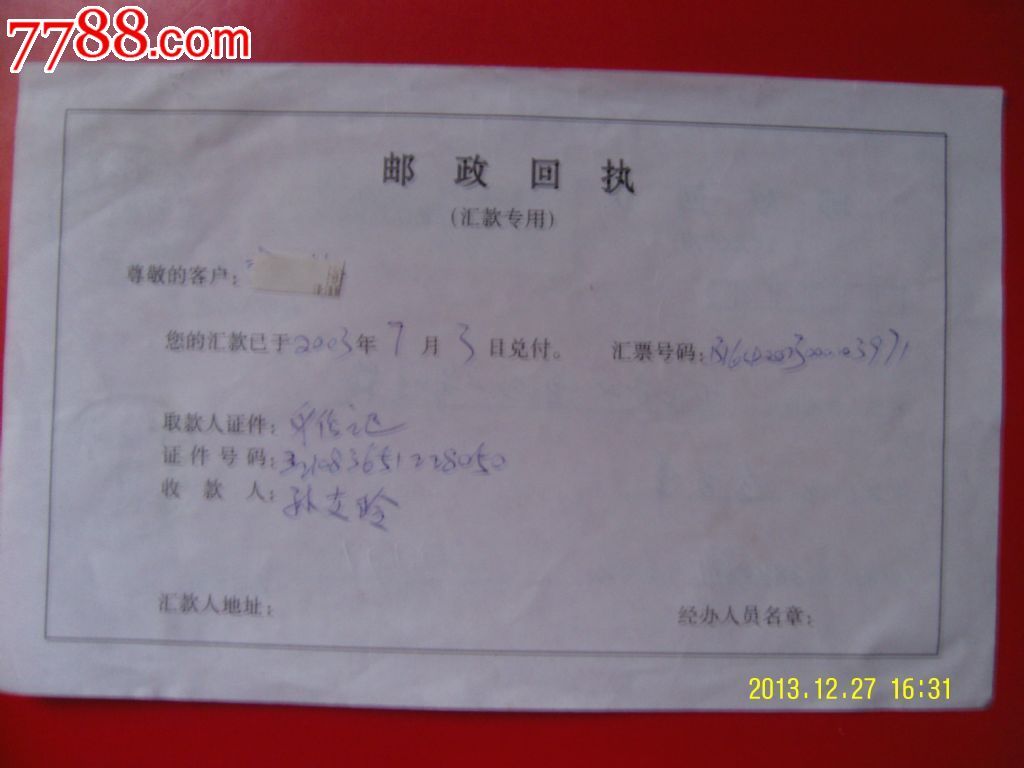 7788.com
邮政回执
(汇款专用)
尊敬的客户:
您的汇款已于2003年7月3日兑付。 汇票号码:
取款人证件:身份证
证件号码:321083651228050
收款人:孙
汇款人地址:
经办人员名章:
2013.12.27 16:31